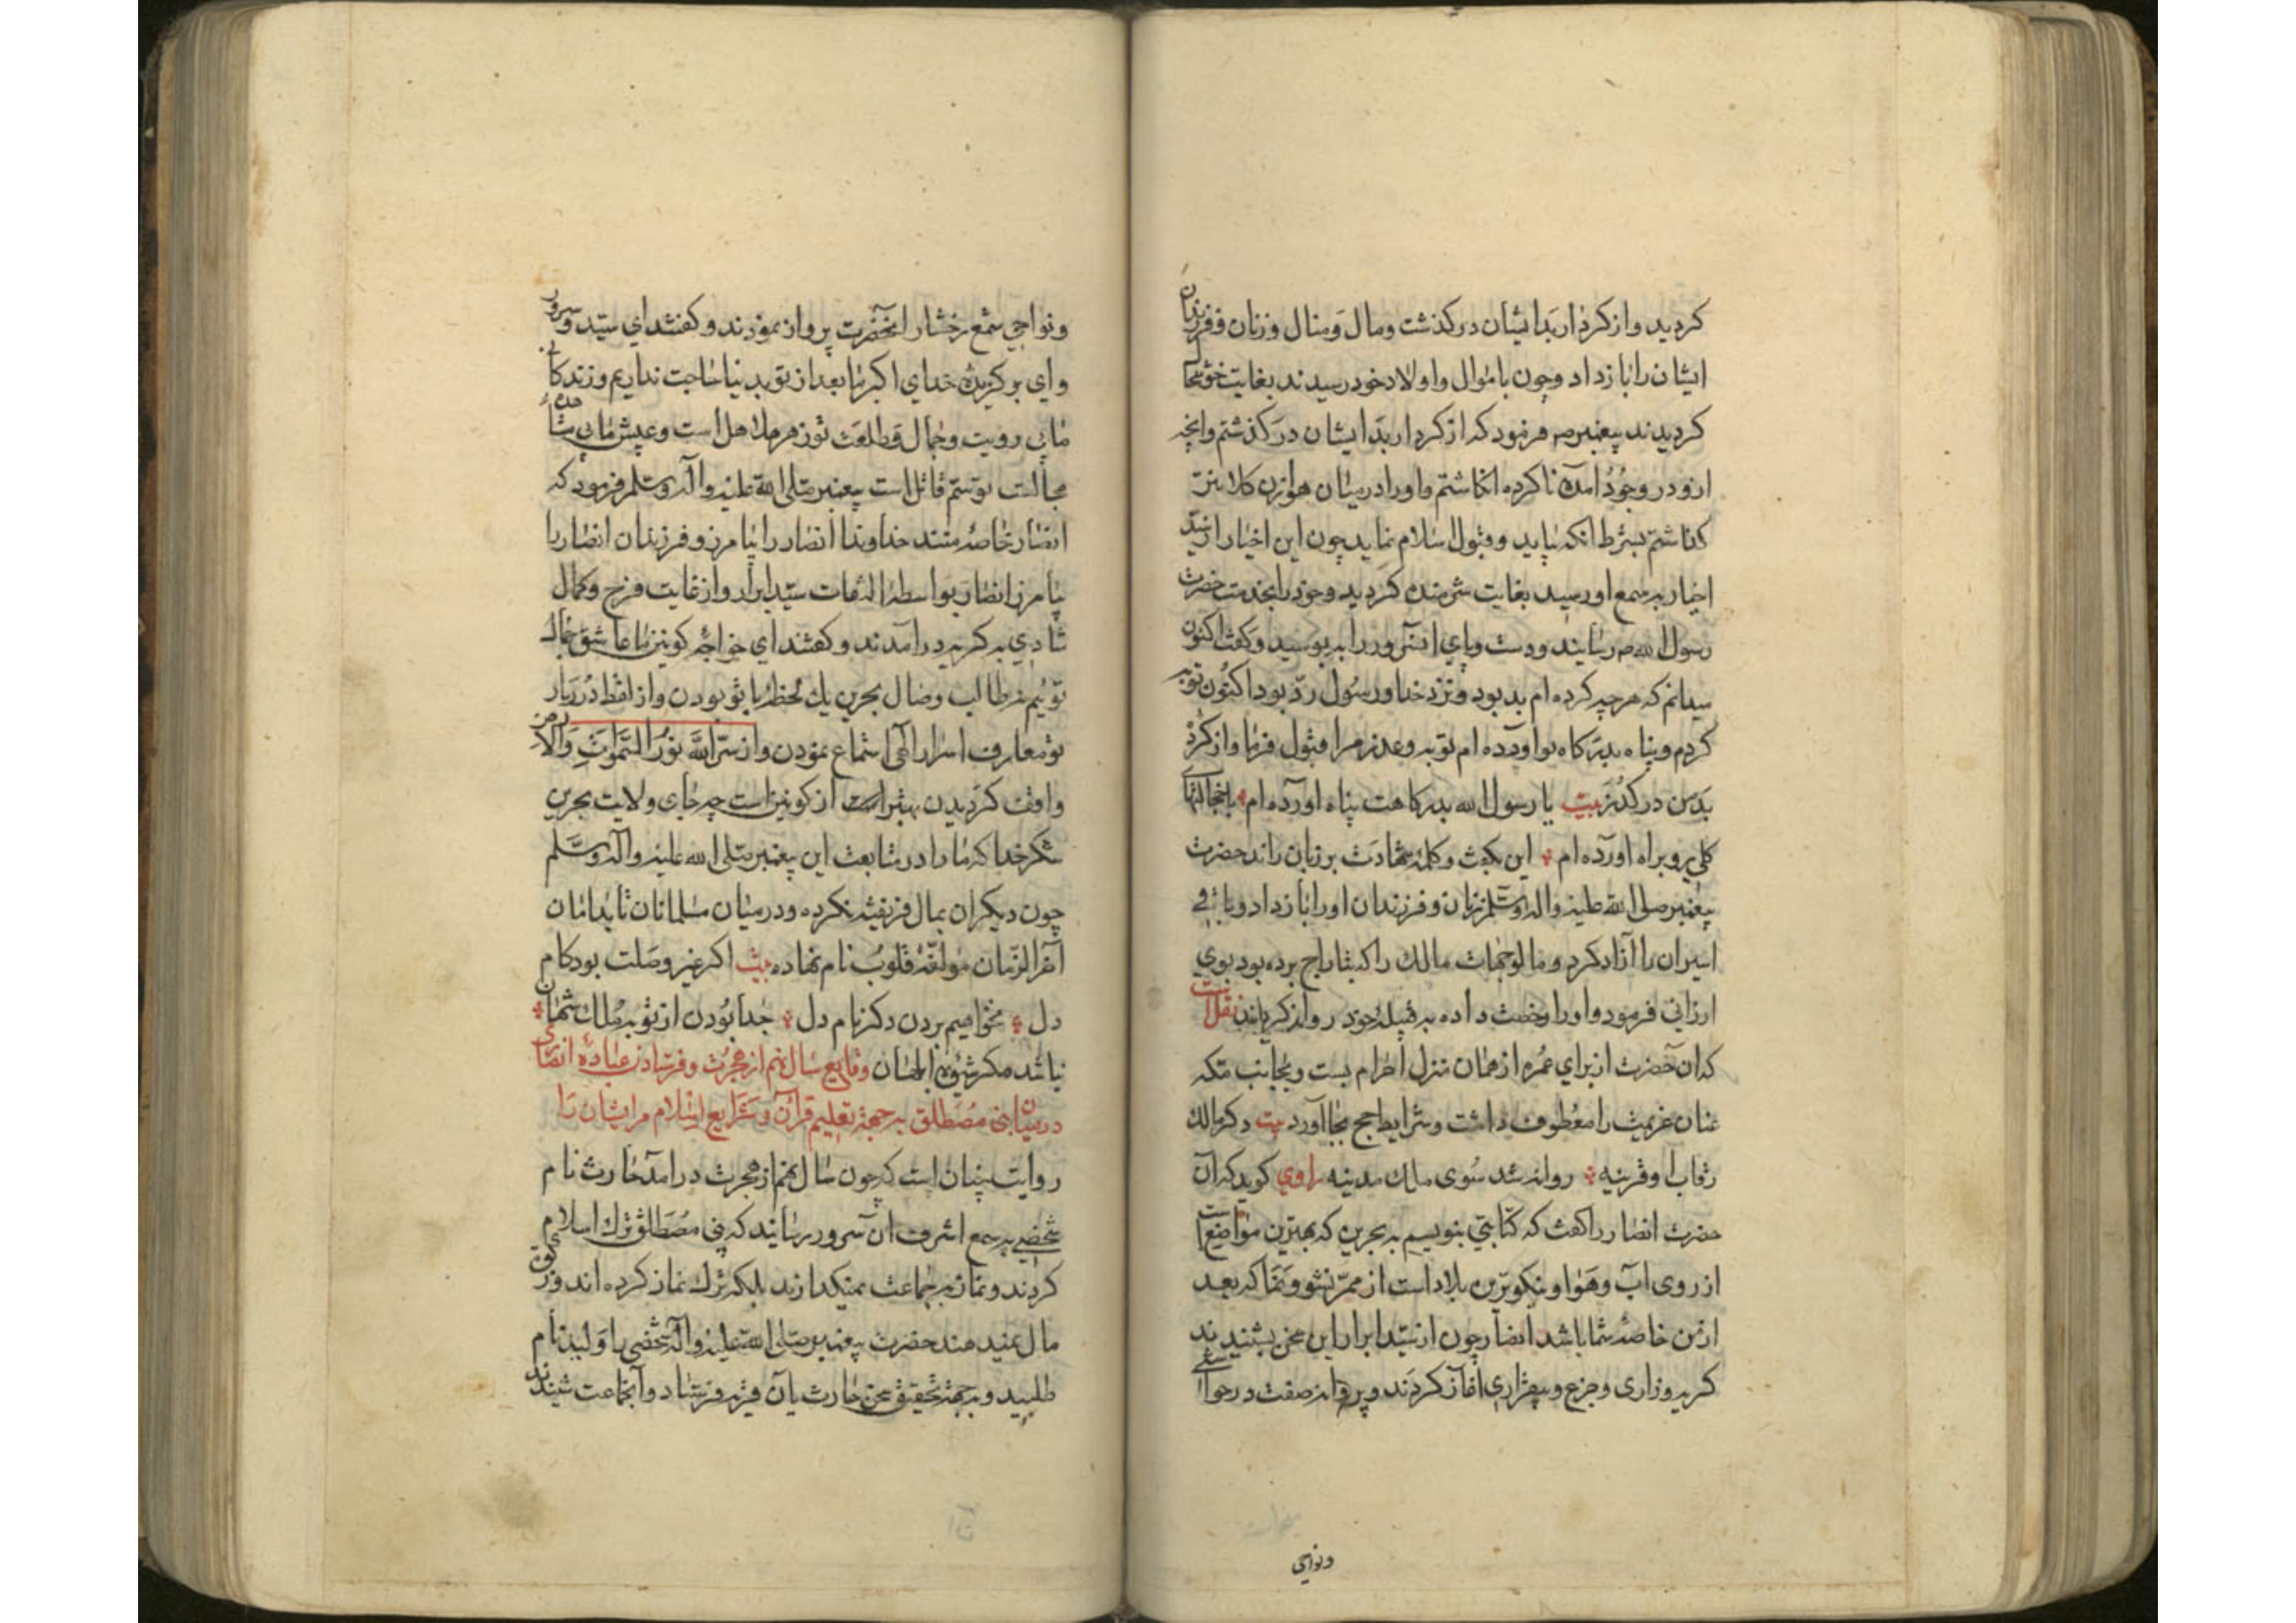 کردید و از کردار بد ایشان در گذشت و مال و منال و زنان و فرزندان
ایشان را باز داد و چون با موال و اولاد خود رسیدند بغایت خوشحا
کردیدند پیغمبر ص فرمود که از کردار بد ایشان در کذشتم و آنچه
ازو در وجود آمده ناکرده انکاشتم و او را در میان هوازن کلانتر
کذاشتم بشرط آنکه بیاید و قبول اسلام نماید چون این اخبار از سید
اخیار بسمع او رسید بغایت شرمنده کردید و خود را بخدمت حضرت
رسول الله ص رسانید و دست و پای آنسرور را ببوسید و کفت اکنون
میدانم که هر چه کرده ام بد بود و نزد خدا و رسول رد بود اکنون توبه
کردم و پناه بدرکاه تو آورده ام توبه و عذر مرا قبول فرما و از کرد
بد من در کذر بیت یا رسول الله بدرکاهت پناه آورده ام با خجالتهای
کلی رو براه آورده ام این بکفت و کلمه شهادت بر زبان راند حضرت
پیغمبر صلی الله علیه و اله و سلم زنان و فرزندان او را باز داد و باقی
اسیران را آزاد کرد و مال و جهات مالک را که بتاراج برده بود بوی
ارزانی فرمود و او را رخصت داده به قبیله خود روانه کردانید نقلست
که آن حضرت از برای عمره از همان منزل احرام بست و بجانب مکه
عنان عزیمت را معطوف داشت و شرایط حج بجا آورد بیت دکر مالک
رقاب آ و قرینه روانه شد سوی ملک مدینه راوی کوید که آن
حضرت انصار را کفت که کتابتی بنویسم به بحرین که بهترین مواضع است
از روی آب و هوا و نیکوترین بلاد است از ممر نشو و نما که بعد
از من خاصه شما باشد انصار چون از سید ابرار این سخن بشنیدند
کریه و زاری و جزع و بیقراری آغاز کردند و پروانه صفت در حوالی
ونواحی
ونواحی شمع رخسار آنحضرت پرواز نمودند و کفتند ای سید و سرور
و ای برکزیده خدای اکبر ما بعد از تو بدنیا حاجت نداریم و زندکانی
ما بی رویت و جمال و طلعت تو زهر هلاهل است و عیش ما بی مشاهده
مجالست تو سم قاتل است پیغمبر صلی الله علیه و آله و سلم فرمود که
انصار خاصه منند خداوندا انصار را بیامرز و فرزندان انصار را
بیامرز انصار بواسطه التفات سید ابرار و از غایت فرح و کمال
شادی به کریه در آمدند و کفتند ای خواجه کونین ما عاشق جمال
توئیم نه طالب وصال بحرین یک لحظه با تو بودن و از لفظ درربار
تو معارف اسرار الهی استماع نمودن و از سر الله نور السموات والارض
واقف کردیدن بهتر است از کونین است چه جای ولایت بحرین
شکر خدا که ما را در متابعت این پیغمبر صلی الله علیه و آله و سلم
چون دیکران بمال فریفته نکرده و در میان مسلمانان تا بدامان
آخر الزمان مؤلفه قلوب نام نهاده بیت اکر غیر وصلت بود کام
دل نخواهیم بردن دکر نام دل جدا بودن از تو بملک شهان
نباشد مکر شیوه ابلهان وقایع سال نهم از هجرت و فرستادن عباده انصاری
در میان بنی مصطلق به جهة تعلیم قرآن و شرایع اسلام مر ایشان را
روایت چنان است که چون سال نهم از هجرت در آمد حارث نام
شخصی بسمع اشرف آن سرور رسانید که بنی مصطلق ترک اسلام
کردند و نماز به جماعت نمیکذارند بلکه ترک نماز کرده اند و زکوة
مال نمیدهند حضرت پیغمبر صلی الله علیه و آله شخصی را ولید نام
طلبید و به جهة تحقیق سخن حارث بآن قریه فرستاد و آنجماعت شنیدند